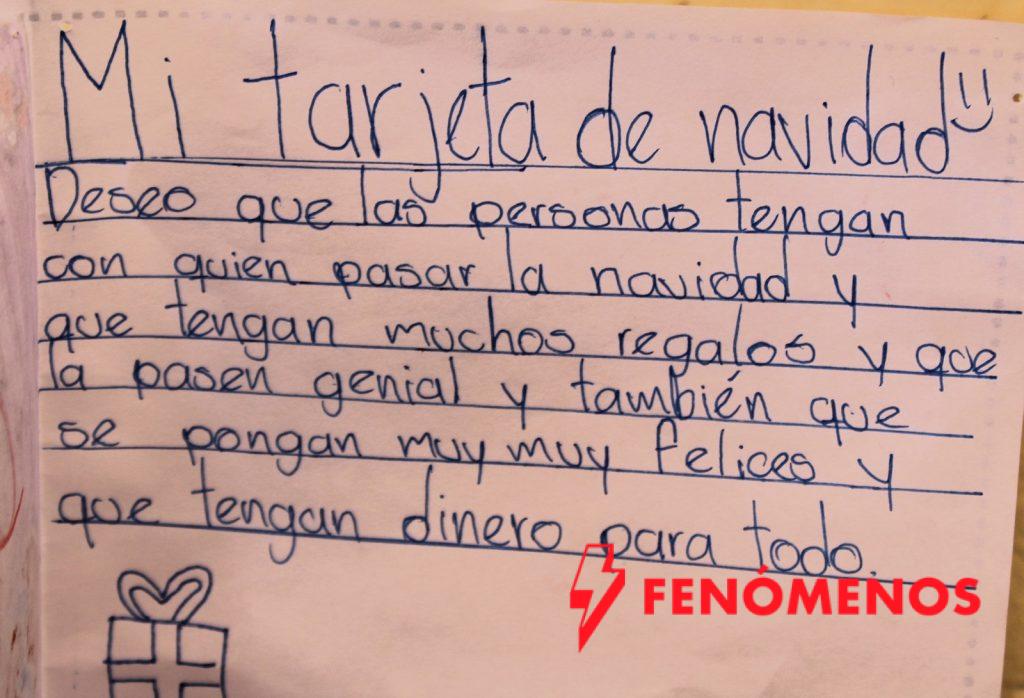 Mi tarjeta de navidad
Deseo que las personas tengan
con quien pasar la navidad y
que tengan muchos regalos y que
la pasen genial y también que
se pongan muy muy felices y
que tengan dinero para todo.
FENÓMENOS